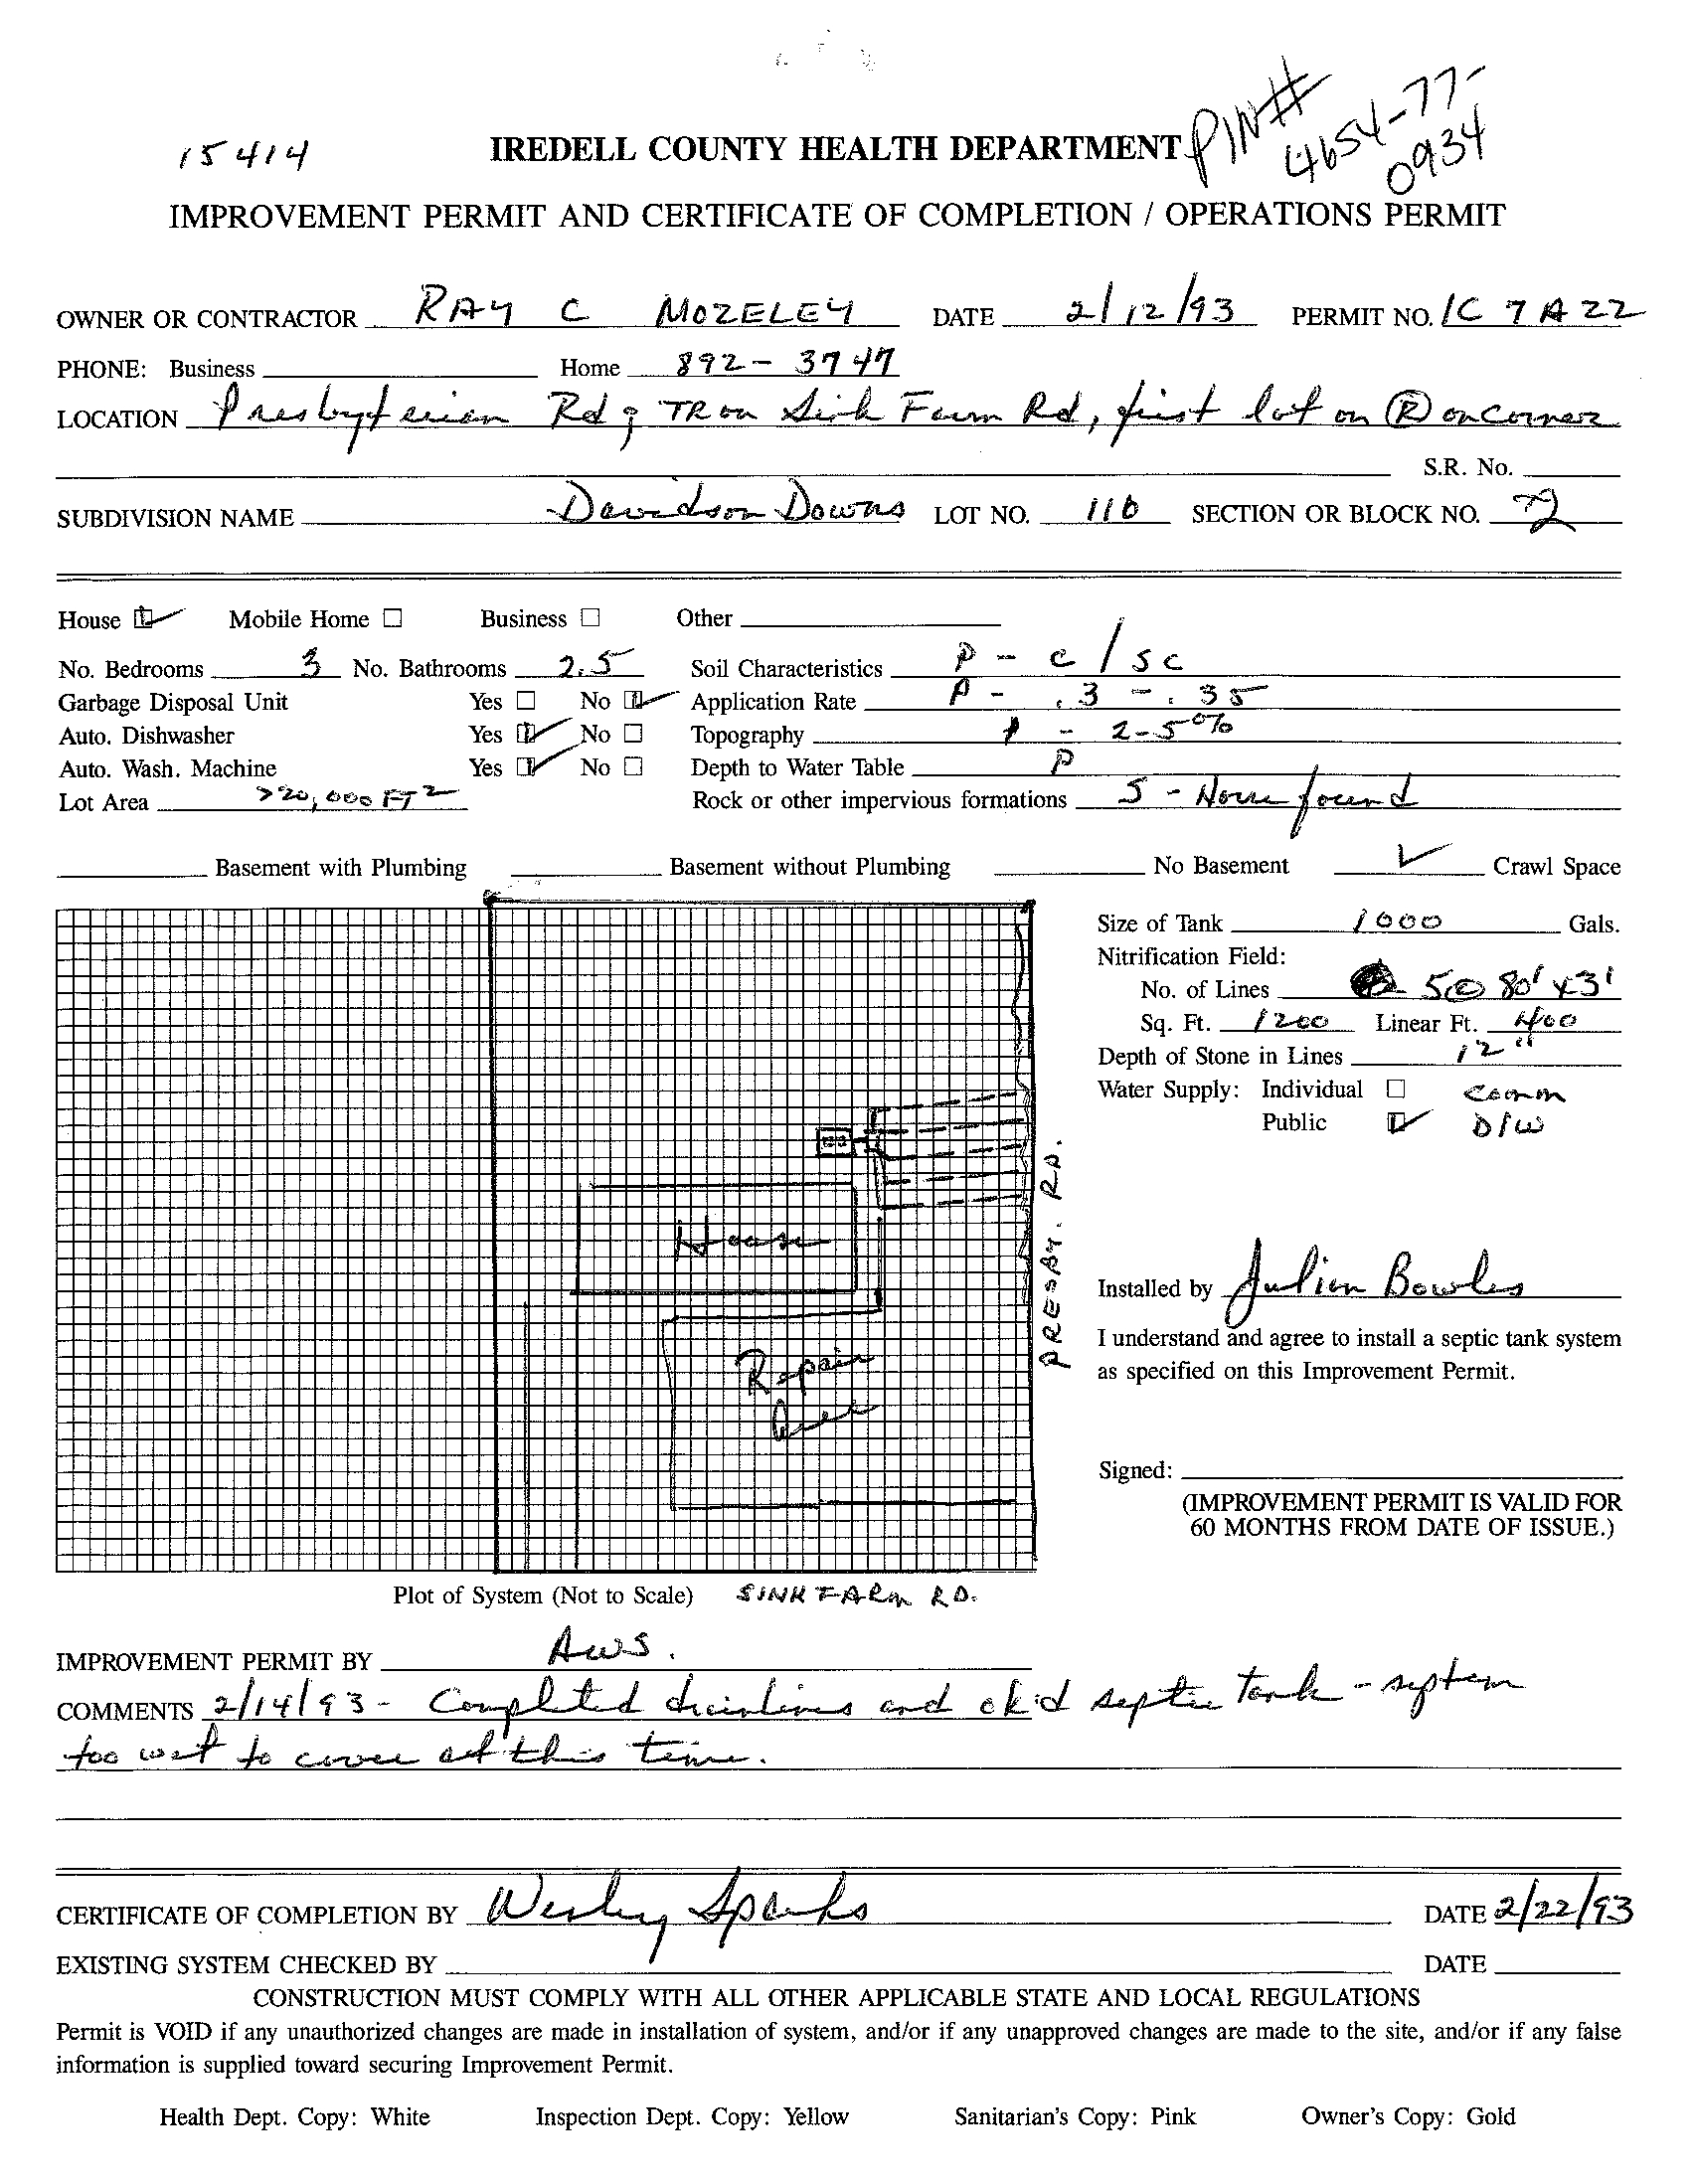 15414
IREDELL COUNTY HEALTH DEPARTMENT
PIN#
4654-77-
0934
IMPROVEMENT PERMIT AND CERTIFICATE OF COMPLETION / OPERATIONS PERMIT
OWNER OR CONTRACTOR RAY C MOZELEY DATE 2/12/93 PERMIT NO. IC 7 A 22
PHONE: Business Home 892-3747
LOCATION Presbyterian Rd; TR on Sink Farm Rd, first lot on Ⓡ on corner
S.R. No.
SUBDIVISION NAME Davidson Downs LOT NO. 110 SECTION OR BLOCK NO. 2
House Mobile Home Business Other
No. Bedrooms 3 No. Bathrooms 2.5 Soil Characteristics P - c / sc
Garbage Disposal Unit Yes No Application Rate P - .3 - .35
Auto. Dishwasher Yes No Topography - 2-5%
Auto. Wash. Machine Yes No Depth to Water Table P
Lot Area >20,000 FT² Rock or other impervious formations S - None found
Basement with Plumbing Basement without Plumbing No Basement ✓ Crawl Space
Size of Tank 1000 Gals.
Nitrification Field:
No. of Lines 5@ 80' x 3'
Sq. Ft. 1200 Linear Ft. 400
Depth of Stone in Lines 12"
Water Supply: Individual Comm
Public D/W
House
PRESBY. RD.
Installed by Julian Bowles
I understand and agree to install a septic tank system
as specified on this Improvement Permit.
Repair
Area
Signed:
(IMPROVEMENT PERMIT IS VALID FOR
60 MONTHS FROM DATE OF ISSUE.)
Plot of System (Not to Scale) SINK FARM RD.
IMPROVEMENT PERMIT BY AWS.
COMMENTS 2/14/93 - Completed drainlines and ok'd septic tank - system
too wet to cover at this time.
CERTIFICATE OF COMPLETION BY Wesley Sparks DATE 2/22/93
EXISTING SYSTEM CHECKED BY DATE
CONSTRUCTION MUST COMPLY WITH ALL OTHER APPLICABLE STATE AND LOCAL REGULATIONS
Permit is VOID if any unauthorized changes are made in installation of system, and/or if any unapproved changes are made to the site, and/or if any false
information is supplied toward securing Improvement Permit.
Health Dept. Copy: White Inspection Dept. Copy: Yellow Sanitarian's Copy: Pink Owner's Copy: Gold